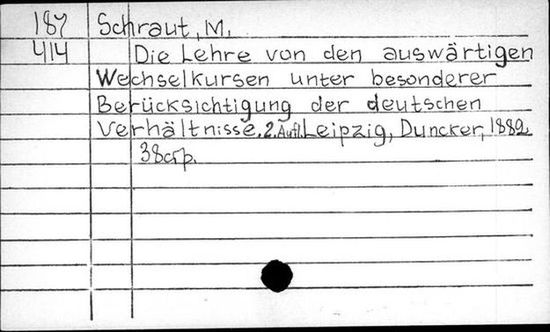 187 Schraut, M.
414 Die Lehre von den auswärtigen
Wechselkursen unter besonderer
Berücksichtigung der deutschen
Verhältnisse. 2. Aufl. Leipzig, Duncker, 1882.
38 стр.